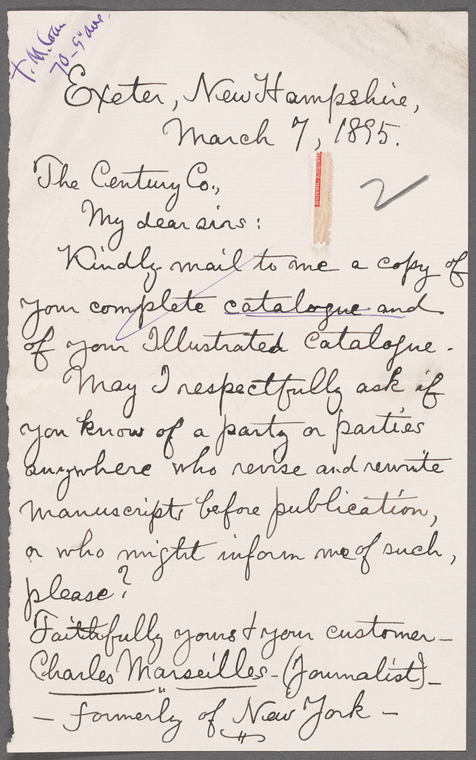 T. M. Coan
70-5" ave,
Exeter, New Hampshire,
March 7, 1895.
2
The Century Co.,
My dear sirs:
Kindly mail to me a copy of
your complete catalogue and
of your Illustrated Catalogue.
May I respectfully ask if
you know of a party or parties
anywhere who revise and rewrite
manuscripts before publication,
or who might inform me of such,
please?
Faithfully yours & your customer—
Charles Marseilles—(Journalist)—
— formerly of New York —